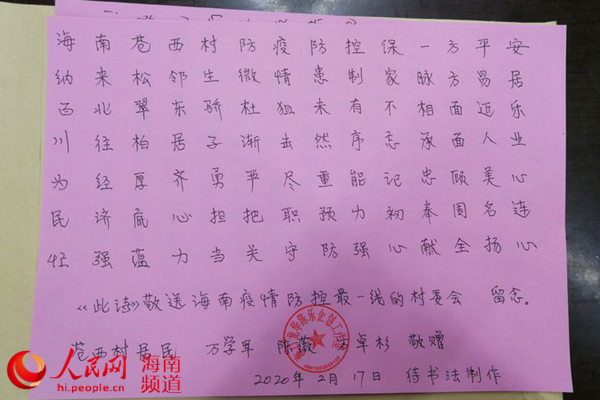 海南苍西村防疫防控保一方平安
纳来松邻生微情患制家脉方易居
百北翠东骄杜狙未有不相面近乐
川往柏居子渐击然序忘承面人业
为经厚齐勇严尽重能记忠顾美心
民济底心担把职预力初奉周名连
旺强蕴力当关守防强心献全扬心
《此诗》敬送海南疫情防控最一线的村委会 留念。
苍西村居民 万学军 陈 卓杉 敬赠
2020年2月17日 待书法制作
人民网 海南频道
hi.people.cn